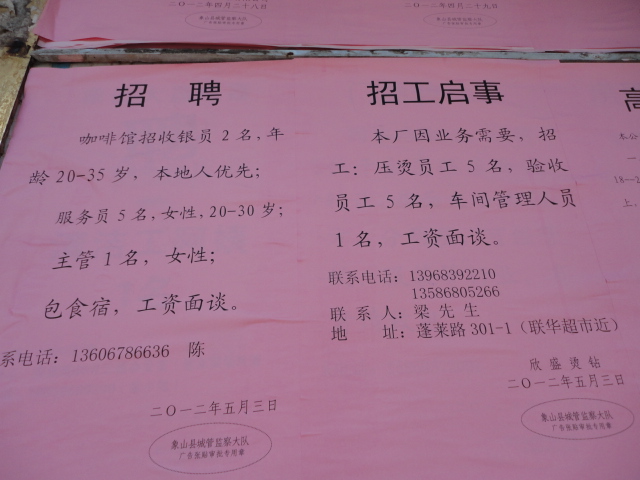 二〇一二年四月二十八日
象山县城管监察大队
广告张贴审批专用章
二〇一二年四月二十九日
象山县城管监察大队
招 聘
咖啡馆招收银员2名,年
龄20-35岁,本地人优先;
服务员5名,女性,20-30岁;
主管1名,女性;
包食宿,工资面谈。
系电话:13606786636 陈
二〇一二年五月三日
象山县城管监察大队
广告张贴审批专用章
招工启事
本厂因业务需要,招
工:压烫员工5名,验收
员工5名,车间管理人员
1名,工资面谈。
联系电话:13968392210
13586805266
联 系 人:梁 先 生
地 址:蓬莱路301-1(联华超市近)
欣盛烫钻
二〇一二年五月三日
象山县城管监察大队
广告张贴审批专用章
高
本公
一
18—2
上,